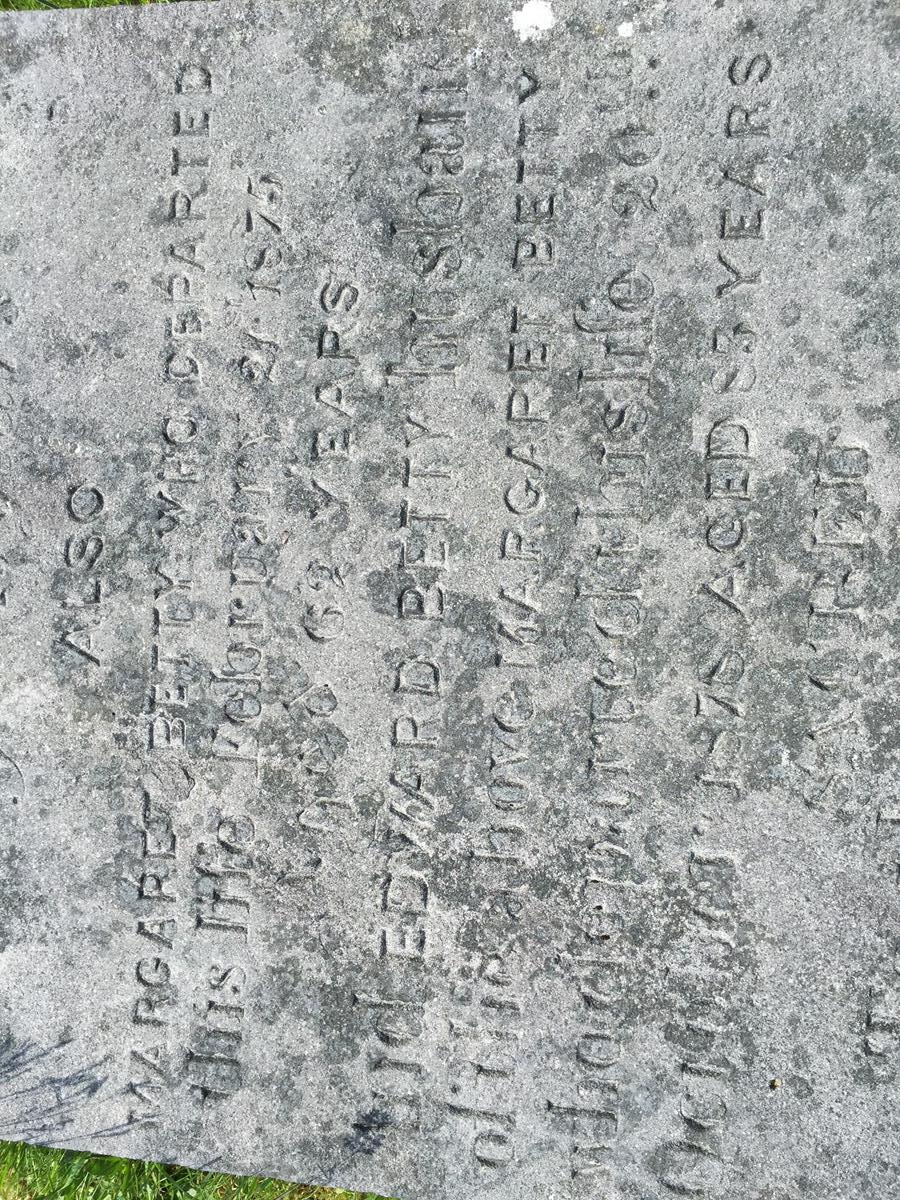 ALSO
MARGARET BETTY WHO DEPARTED
this life February 21st 1875
Aged 62 YEARS
and EDWARD BETTY husband
of the above MARGARET BETTY
who departed this life 20th
October 1878 AGED 85 YEARS